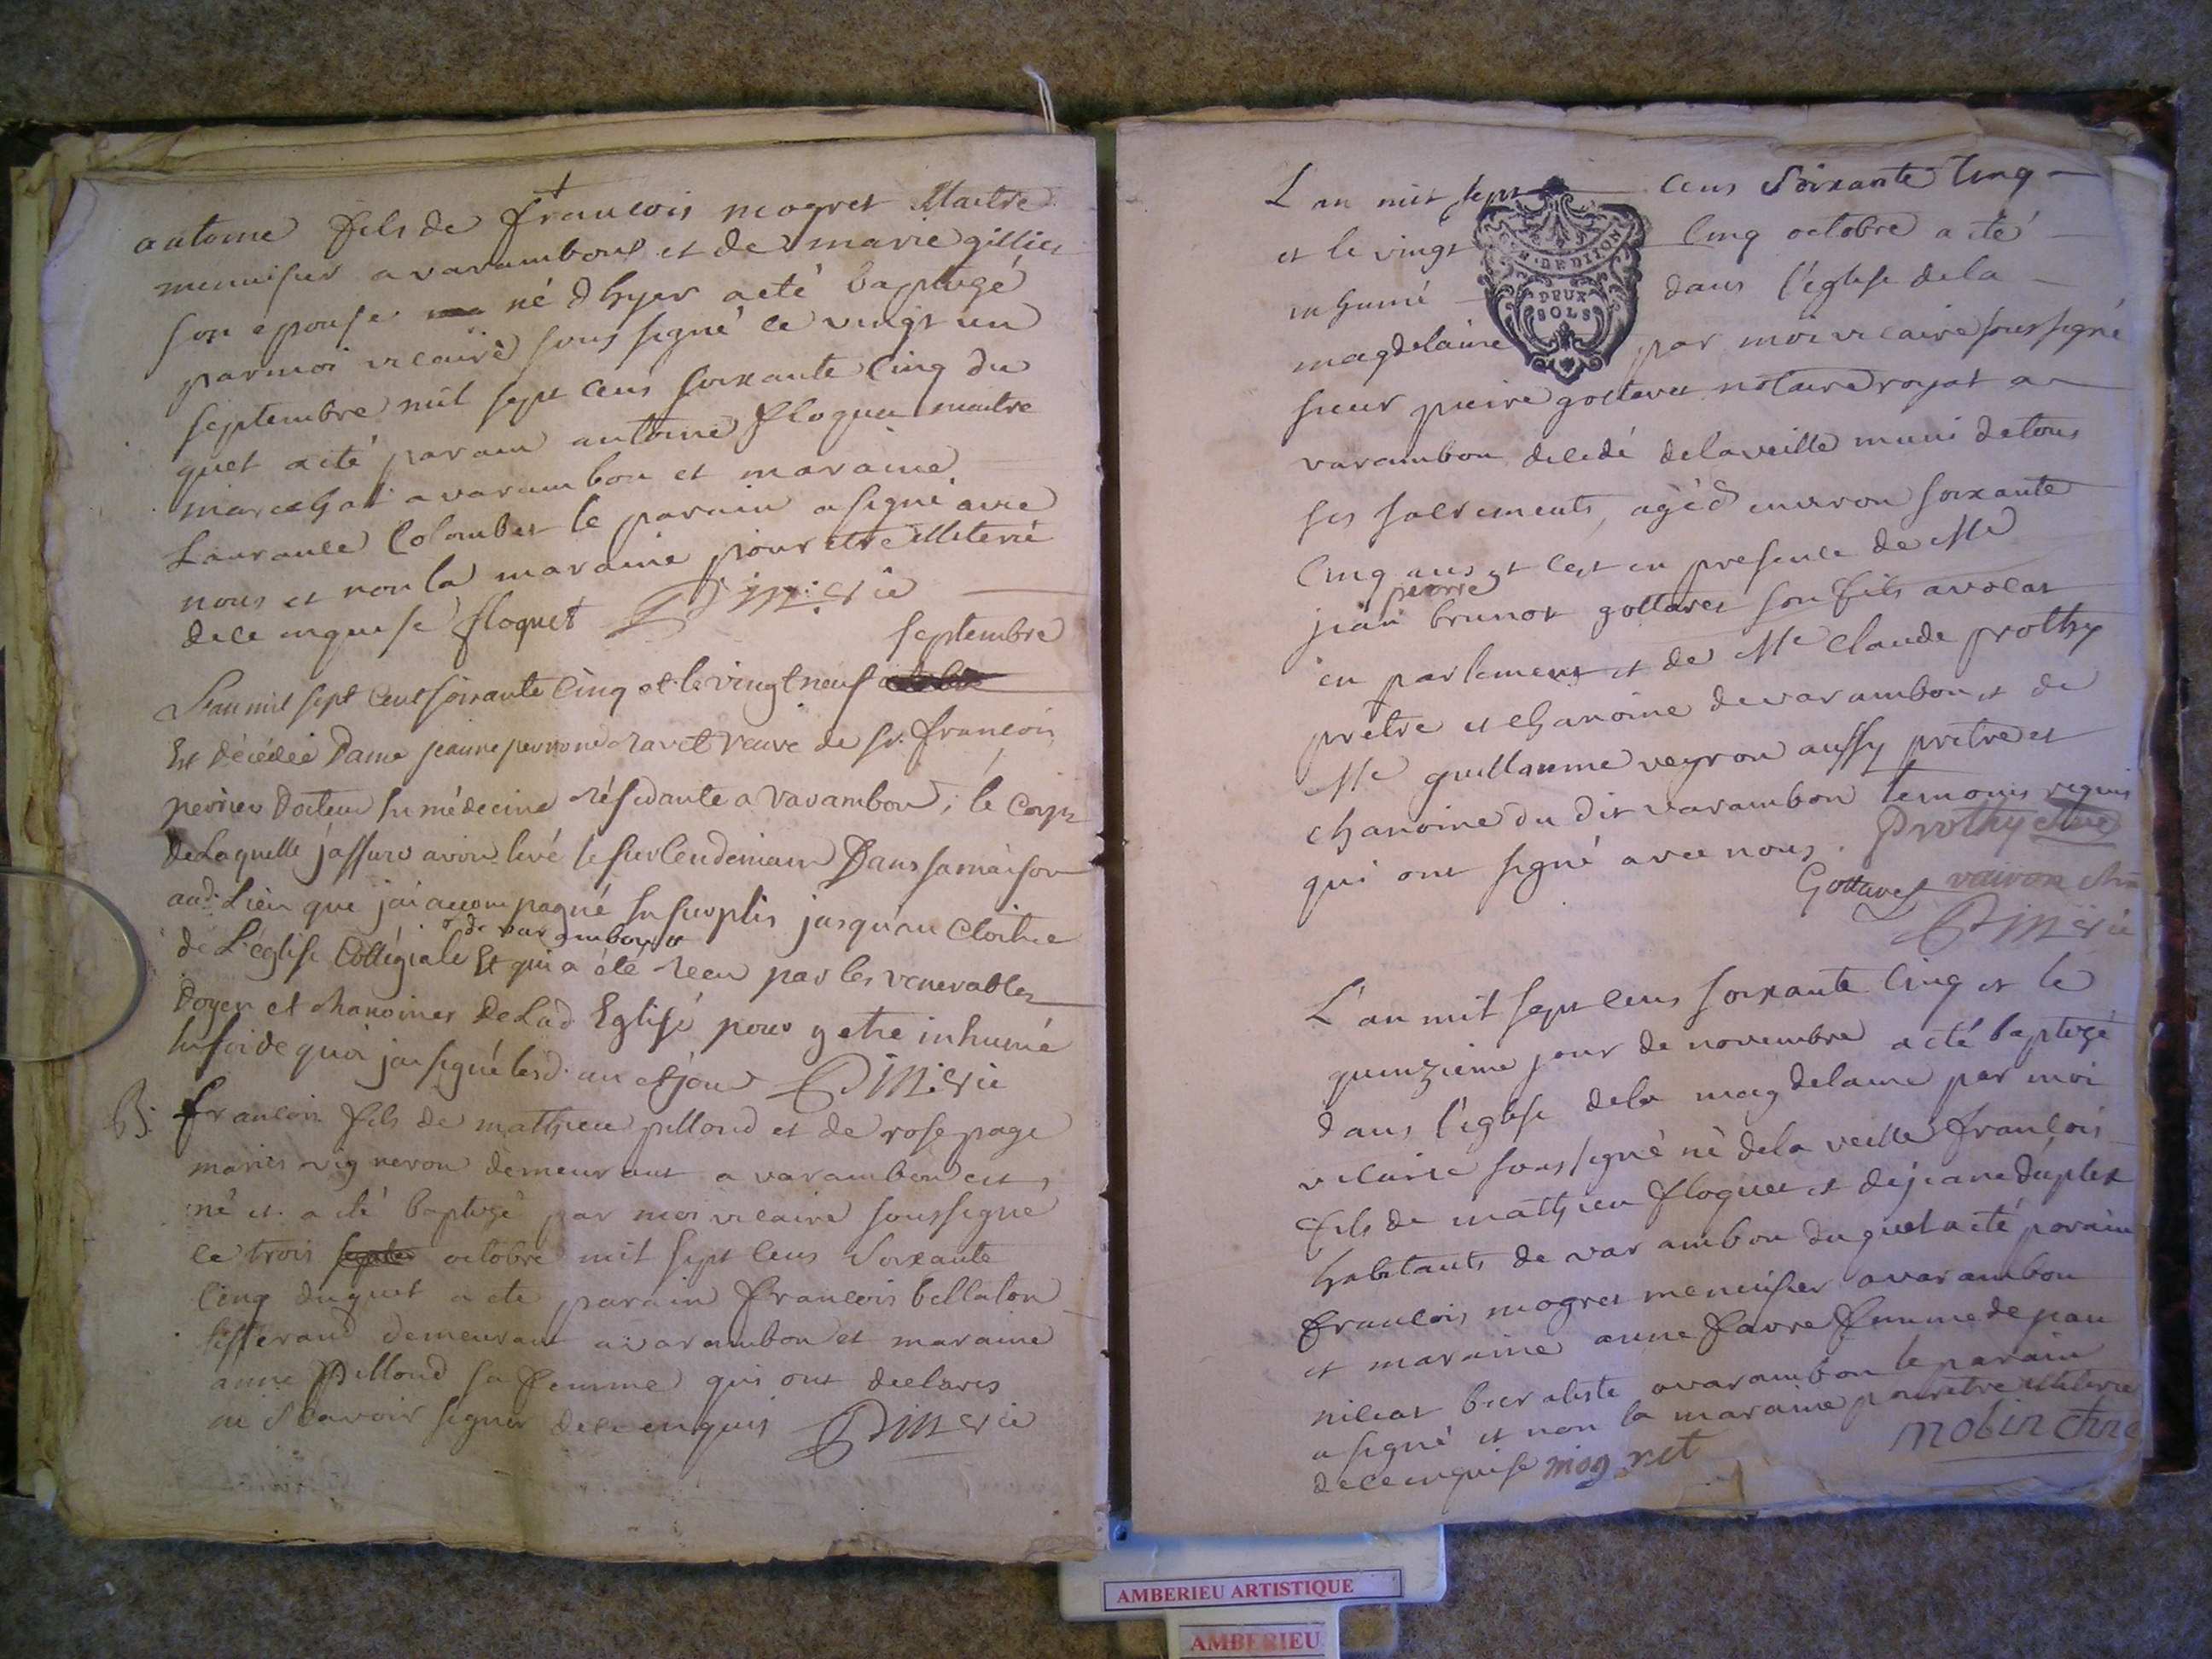 antoine fils de françois mogret Maitre
menuisier a varambons et de marie gillier
son epouse né dhyer a eté baptizé
par moi vicaire sous signé ce vingt un
septembre mil sept cens soixante cinq du
quel a eté parain antoine floquet maitre
marechal a varambon et maraine
Laurance Colombet le parain a signé avec
nous et non la maraine pour etre illiterée
de ce enquise floquet Dimerie
septembre
L'an mil sept cent soixante cinq et le vingt neuf
Est décédée Dame jeanne perrone ravet veuve de sr. françois
perrier docteur en médecine résidante a Varambon, le corps
de Laquelle j'assure avoir levé le surlendemain Dans sa maison
aud. Lieu que j'ai accompagné en surplis jusqu'au Cloitre
de varambon
de L'église Collégiale Et qui a été recu par les venerables
Doyen et chanoines de Lad. Eglise pour y etre inhumé
En foi de quoi j'ai signé lesd. an et jour Dimerie
B: françois fils de mathieu pilloud et de rose page
mariés vigneron demeurant a varambon est
né et a eté baptizé par moi vicaire soussigné
ce trois septe octobre mil sept cens soixante
cinq duquel a ete parain françois bellaton
tisserand demeurant a varambon et maraine
anne Pilloud sa femme qui ont declarés
ne scavoir signer de ce enquis Dimerie
L'an mil sept cens soixante cinq
et le vingt cinq octobre a eté
inhumé dans l'église de la
GEN. DE DIJON
DEUX
SOLS
magdelaine par moi vicaire soussigné
sieur pierre gottaret notaire royal a
varambon décédé de la veille muni de tous
ses sacrements, agé d'environ soixante
cinq ans et c'est en presence de Me
pierre
jean brunot gottaret son fils avocat
en parlement et de Me Claude prothy
pretre et chanoine de varambon et de
Me guillaume veyron aussy pretre et
chanoine du dit varambon temoins requis
qui ont signé avec nous. Prothy chne
Gottaret vairon chne
Dimerie
L'an mil sept cens soixante cinq et le
quinzieme jour de novembre a eté baptizé
dans l'église de la magdelaine par moi
vicaire soussigné né de la veille françois
fils de mathieu floquet et de jeane duplex
habitants de varambon duquel a eté parain
françois mogret menuisier a varambon
et maraine anne favre femme de pan
a varambon le parain
a signé et non la maraine pour etre illiterée
de ce enquise mogret mobin chne
AMBERIEU ARTISTIQUE
AMBERIEU